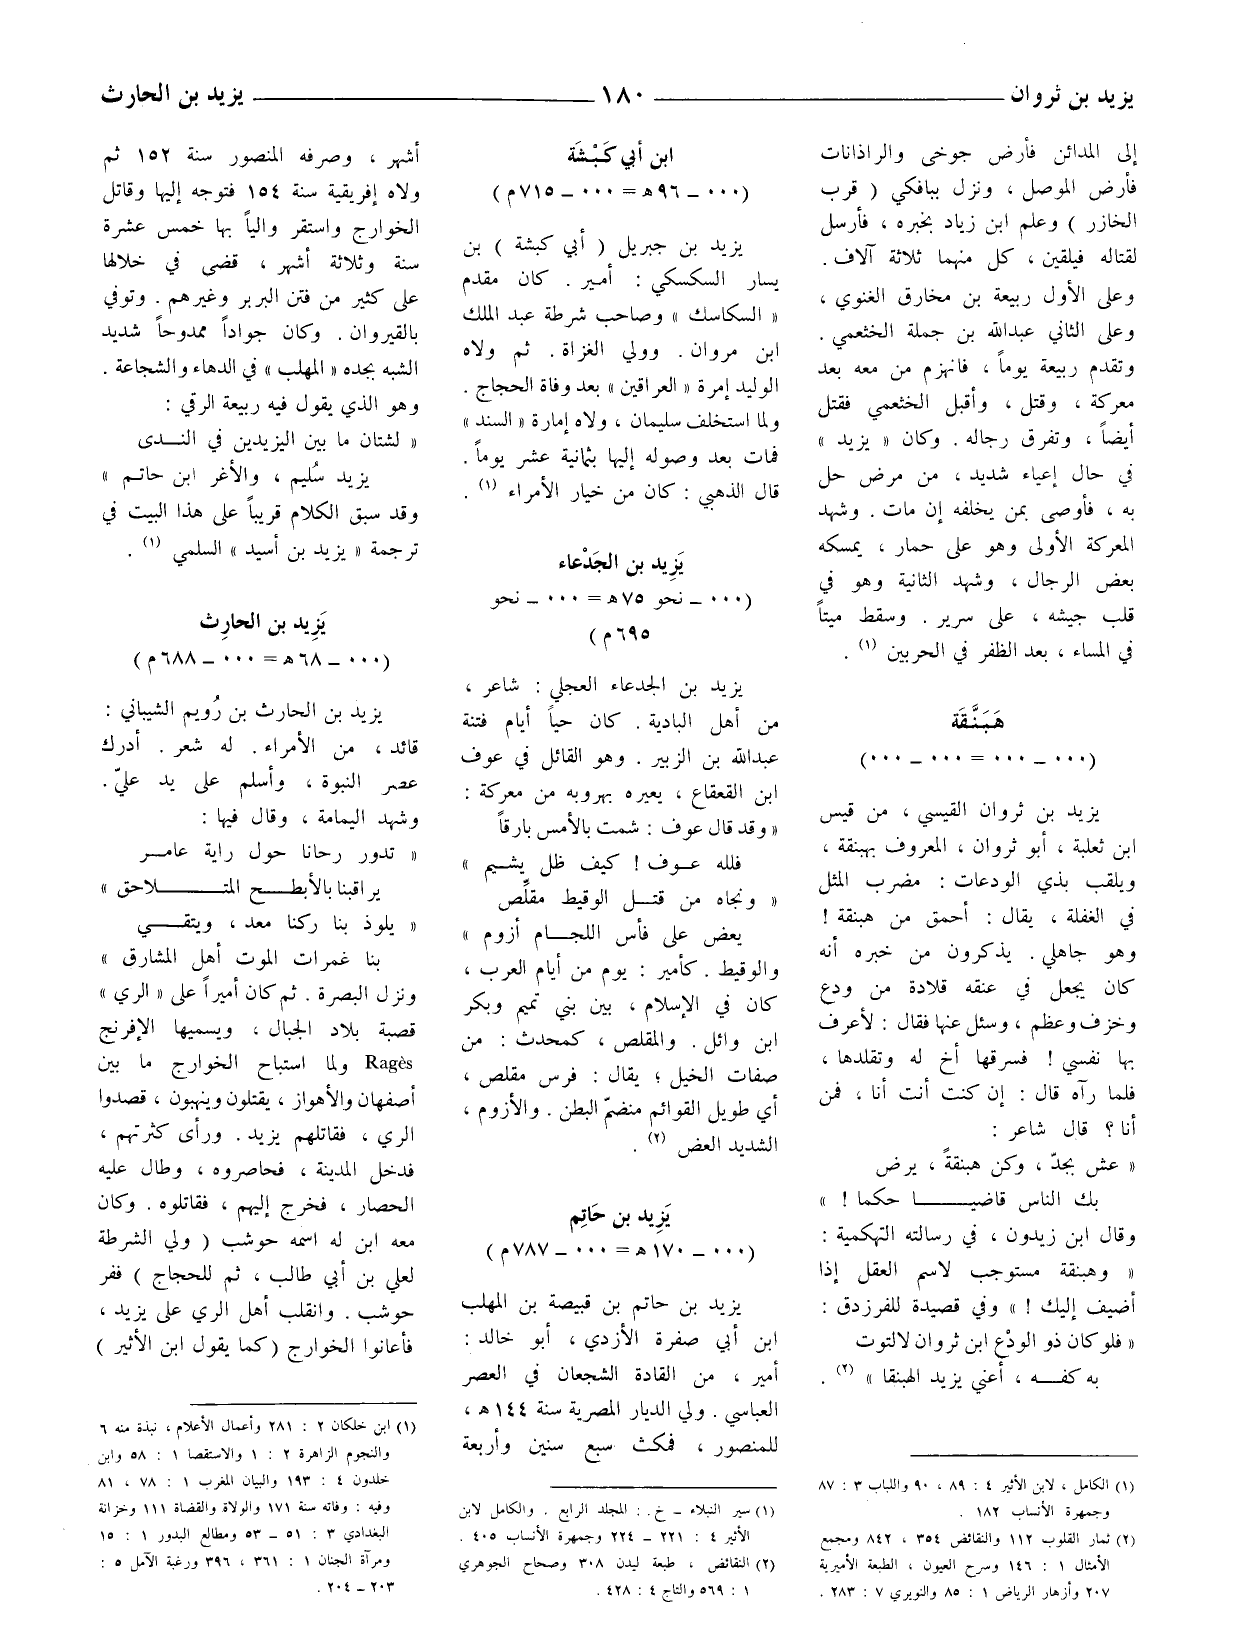 يزيد بن ثروان ــــــ ١٨٠ ــــــ يزيد بن الحارث
إلى المدائن فأرض جوخى والراذانات
فأرض الموصل ، ونزل ببافكي ( قرب
الخازر ) وعلم ابن زياد بخبره ، فأرسل
لقتاله فيلقين ، كل منهما ثلاثة آلاف .
وعلى الأول ربيعة بن مخارق الغنوي ،
وعلى الثاني عبدالله بن جملة الخثعمي .
وتقدم ربيعة يوماً ، فانهزم من معه بعد
معركة ، وقتل ، وأقبل الخثعمي فقتل
أيضاً ، وتفرق رجاله . وكان « يزيد »
في حال إعياء شديد ، من مرض حل
به ، فأوصى بمن يخلفه إن مات . وشهد
المعركة الأولى وهو على حمار ، يمسكه
بعض الرجال ، وشهد الثانية وهو في
قلب جيشه ، على سرير . وسقط ميتاً
في المساء ، بعد الظفر في الحربين (١) .
هَبَنَّقَة
(٠٠٠ ــ ٠٠٠ = ٠٠٠ ــ ٠٠٠)
يزيد بن ثروان القيسي ، من قيس
ابن ثعلبة ، أبو ثروان ، المعروف بهبنقة ،
ويلقب بذي الودعات : مضرب المثل
في الغفلة ، يقال : أحمق من هبنقة !
وهو جاهلي . يذكرون من خبره أنه
كان يجعل في عنقه قلادة من ودع
وخزف وعظم ، وسئل عنها فقال : لأعرف
بها نفسي ! فسرقها أخ له وتقلدها ،
فلما رآه قال : إن كنت أنت أنا ، فمن
أنا ؟ قال شاعر :
« عش بجدّ ، وكن هبنقةً ، يرض
بك الناس قاضيــــا حكما ! »
وقال ابن زيدون ، في رسالته التهكمية :
« وهبنقة مستوجب لاسم العقل إذا
أضيف إليك ! » وفي قصيدة للفرزدق :
« فلو كان ذو الودْع ابن ثروان لالتوت
به كفــه ، أعني يزيد الهبنقا » (٢) .
(١) الكامل ، لابن الأثير ٤ : ٨٩ ، ٩٠ واللباب ٣ : ٨٧
وجمهرة الأنساب ١٨٢
(٢) ثمار القلوب ١١٢ والنقائض ٣٥٤ ، ٨٤٢ ومجمع
الأمثال ١ : ١٤٦ وسرح العيون ، الطبعة الأميرية
٢٠٧ وأزهار الرياض ١ : ٨٥ والنويري ٧ : ٢٨٣ .
ابن أبي كَبْشَة
(٠٠٠ ــ ٩٦ه = ٠٠٠ ــ ٧١٥م)
يزيد بن جبريل ( أبي كبشة ) بن
يسار السكسكي : أمير . كان مقدم
« السكاسك » وصاحب شرطة عبد الملك
ابن مروان . وولي الغزاة . ثم ولاه
الوليد إمرة « العراقين » بعد وفاة الحجاج .
ولما استخلف سليمان ، ولاه إمارة « السند »
فمات بعد وصوله إليها بثمانية عشر يوماً .
قال الذهبي : كان من خيار الأمراء (١) .
يَزِيد بن الجَدْعاء
(٠٠٠ ــ نحو ٧٥ه = ٠٠٠ ــ نحو
٦٩٥م)
يزيد بن الجدعاء العجلي : شاعر ،
من أهل البادية . كان حياً أيام فتنة
عبدالله بن الزبير . وهو القائل في عوف
ابن القعقاع ، يعيره بهروبه من معركة :
« وقد قال عوف : شمت بالأمس بارقاً
فلله عــوف ! كيف ظل يشيم »
« ونجاه من قتــل الوقيط مقلِّص
يعض على فأس اللجــام أزوم »
والوقيط . كأمير : يوم من أيام العرب ،
كان في الإسلام ، بين بني تميم وبكر
ابن وائل . والمقلص ، كمحدث : من
صفات الخيل ؛ يقال : فرس مقلص ،
أي طويل القوائم منضمّ البطن . والأزوم ،
الشديد العض (٢) .
يَزِيد بن حَاتِم
(٠٠٠ ــ ١٧٠ه = ٠٠٠ ــ ٧٨٧م)
يزيد بن حاتم بن قبيصة بن المهلب
ابن أبي صفرة الأزدي ، أبو خالد :
أمير ، من القادة الشجعان في العصر
العباسي . ولي الديار المصرية سنة ١٤٤ ه ،
للمنصور ، فمكث سبع سنين وأربعة
(١) سير النبلاء ــ خ . : المجلد الرابع . والكامل لابن
الأثير ٤ : ٢٢١ ــ ٢٢٤ وجمهرة الأنساب ٤٠٥ .
(٢) النقائض ، طبعة ليدن ٣٠٨ وصحاح الجوهري
١ : ٥٦٩ والتاج ٤ : ٤٢٨ .
أشهر ، وصرفه المنصور سنة ١٥٢ ثم
ولاه إفريقية سنة ١٥٤ فتوجه إليها وقاتل
الخوارج واستقر والياً بها خمس عشرة
سنة وثلاثة أشهر ، قضى في خلالها
على كثير من فتن البربر وغيرهم . وتوفي
بالقيروان . وكان جواداً ممدوحاً شديد
الشبه بجده « المهلب » في الدهاء والشجاعة .
وهو الذي يقول فيه ربيعة الرقي :
« لشتان ما بين اليزيدين في النــدى
يزيد سُليم ، والأغر ابن حاتـم »
وقد سبق الكلام قريباً على هذا البيت في
ترجمة « يزيد بن أسيد » السلمي (١) .
يَزِيد بن الحارِث
(٠٠٠ ــ ٦٨ه = ٠٠٠ ــ ٦٨٨م)
يزيد بن الحارث بن رُويم الشيباني :
قائد ، من الأمراء . له شعر . أدرك
عصر النبوة ، وأسلم على يد عليّ .
وشهد اليمامة ، وقال فيها :
« تدور رحانا حول راية عامـر
يراقبنا بالأبطــح المتــــلاحق »
« يلوذ بنا ركنا معد ، ويتقــي
بنا غمرات الموت أهل المشارق »
ونزل البصرة . ثم كان أميراً على « الري »
قصبة بلاد الجبال ، ويسميها الإفرنج
Ragès ولما استباح الخوارج ما بين
أصفهان والأهواز ، يقتلون وينهبون ، قصدوا
الري ، فقاتلهم يزيد . ورأى كثرتهم ،
فدخل المدينة ، فحاصروه ، وطال عليه
الحصار ، فخرج إليهم ، فقاتلوه . وكان
معه ابن له اسمه حوشب ( ولي الشرطة
لعلي بن أبي طالب ، ثم للحجاج ) ففر
حوشب . وانقلب أهل الري على يزيد ،
فأعانوا الخوارج ( كما يقول ابن الأثير )
(١) ابن خلكان ٢ : ٢٨١ وأعمال الأعلام ، نبذة منه ٦
والنجوم الزاهرة ٢ : ١ والاستقصا ١ : ٥٨ وابن
خلدون ٤ : ١٩٣ والبيان المغرب ١ : ٧٨ ، ٨١
وفيه : وفاته سنة ١٧١ والولاة والقضاة ١١١ وخزانة
البغدادي ٣ : ٥١ ــ ٥٣ ومطالع البدور ١ : ١٥
ومرآة الجنان ١ : ٣٦١ ، ٣٩٦ ورغبة الآمل ٥ :
٢٠٣ ــ ٢٠٤ .